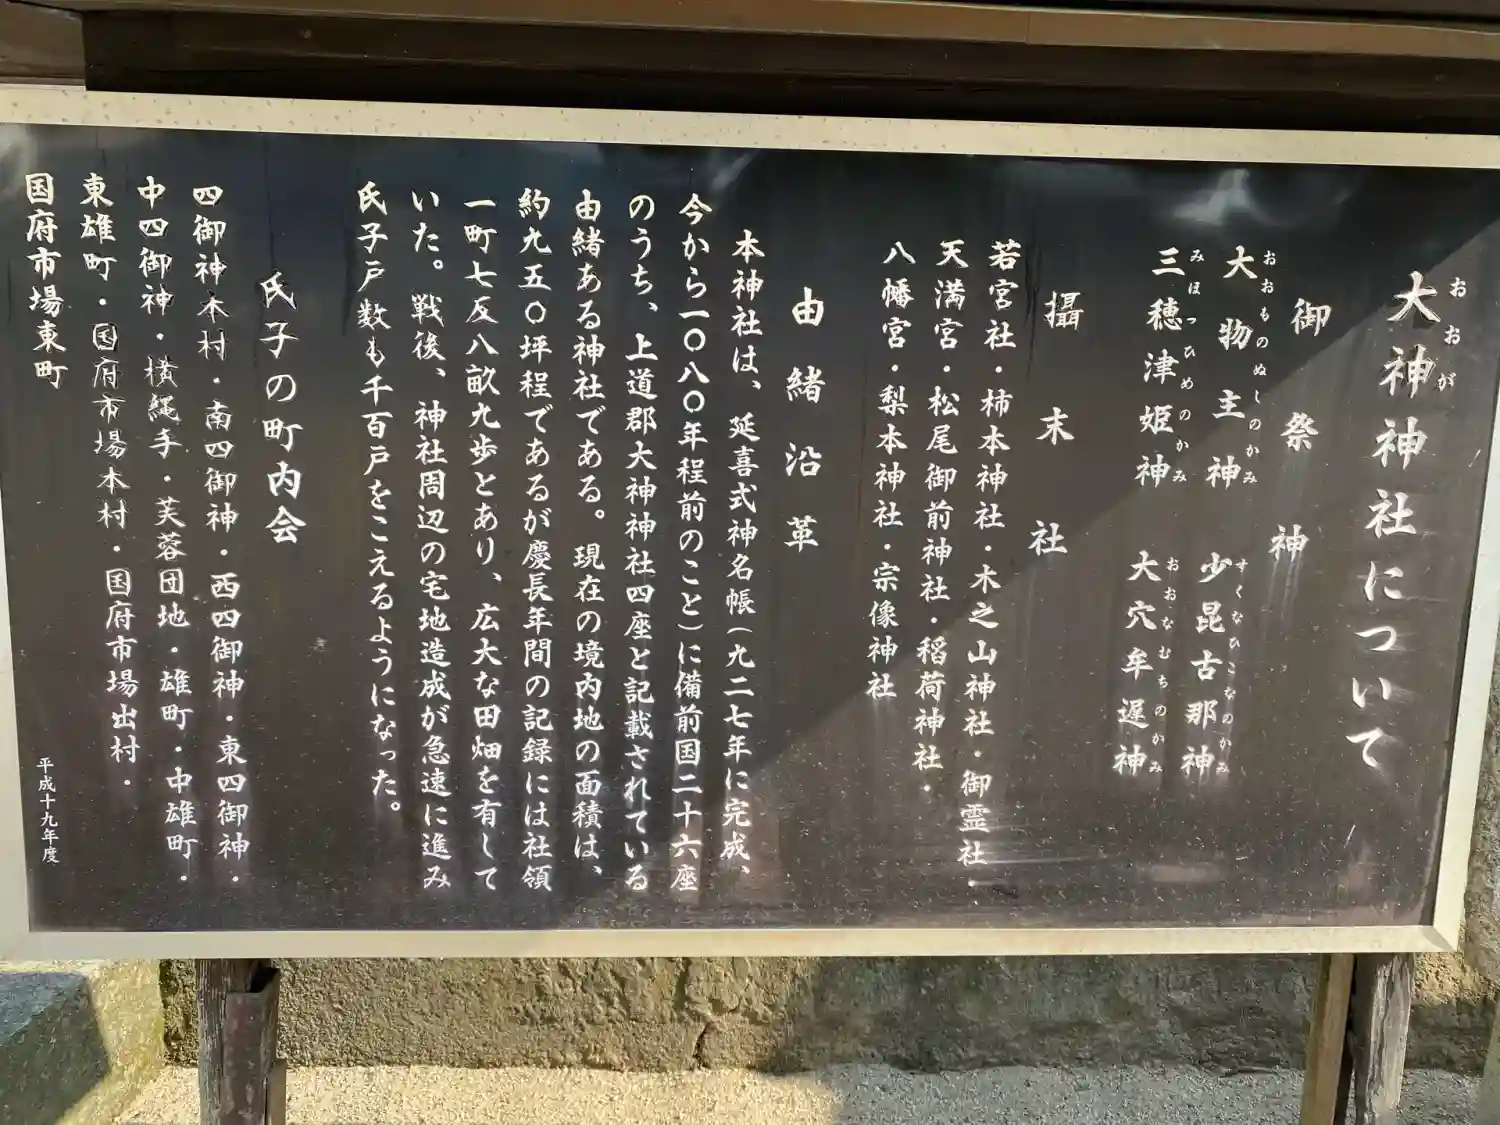 大神神社について
おおが
御祭神
大物主神　少昆古那神
おおものぬしのかみ　すくなひこなのかみ
三穂津姫神　大穴牟遅神
みほつひめのかみ　おおなむちのかみ
摂末社
若宮社・柿本神社・木之山神社・御霊社・
天満宮・松尾御前神社・稲荷神社・
八幡宮・梨本神社・宗像神社
由緒沿革
本神社は、延喜式神名帳(九二七年に完成、
今から一〇八〇年程前のこと)に備前国二十六座
のうち、上道郡大神神社四座と記載されている
由緒ある神社である。現在の境内地の面積は、
約九五〇坪程であるが慶長年間の記録には社領
一町七反八畝九歩とあり、広大な田畑を有して
いた。戦後、神社周辺の宅地造成が急速に進み
氏子戸数も千百戸をこえるようになった。
氏子の町内会
四御神本村・南四御神・西四御神・東四御神・
中四御神・横縄手・芙蓉団地・雄町・中雄町・
東雄町・国府市場本村・国府市場出村・
国府市場東町
平成十九年度